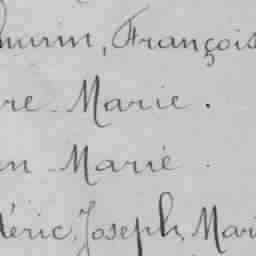 François
re Marie.
en Marie
déric, Joseph, Mari